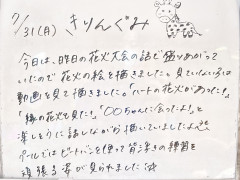 7/31(月) きりんぐみ
今日は、昨日の花火大会の話で盛りあがって
いたので花火の絵を描きました。見ていない子は
動画を見て描きました。「ハートの花火があった!」
「緑の花火も見た!」「〇〇ちゃんに会ったよ!」と
楽しそうに話しながら描いていましたよ
プールではビート板を使って背浮きの練習を
頑張る姿が見られました☆